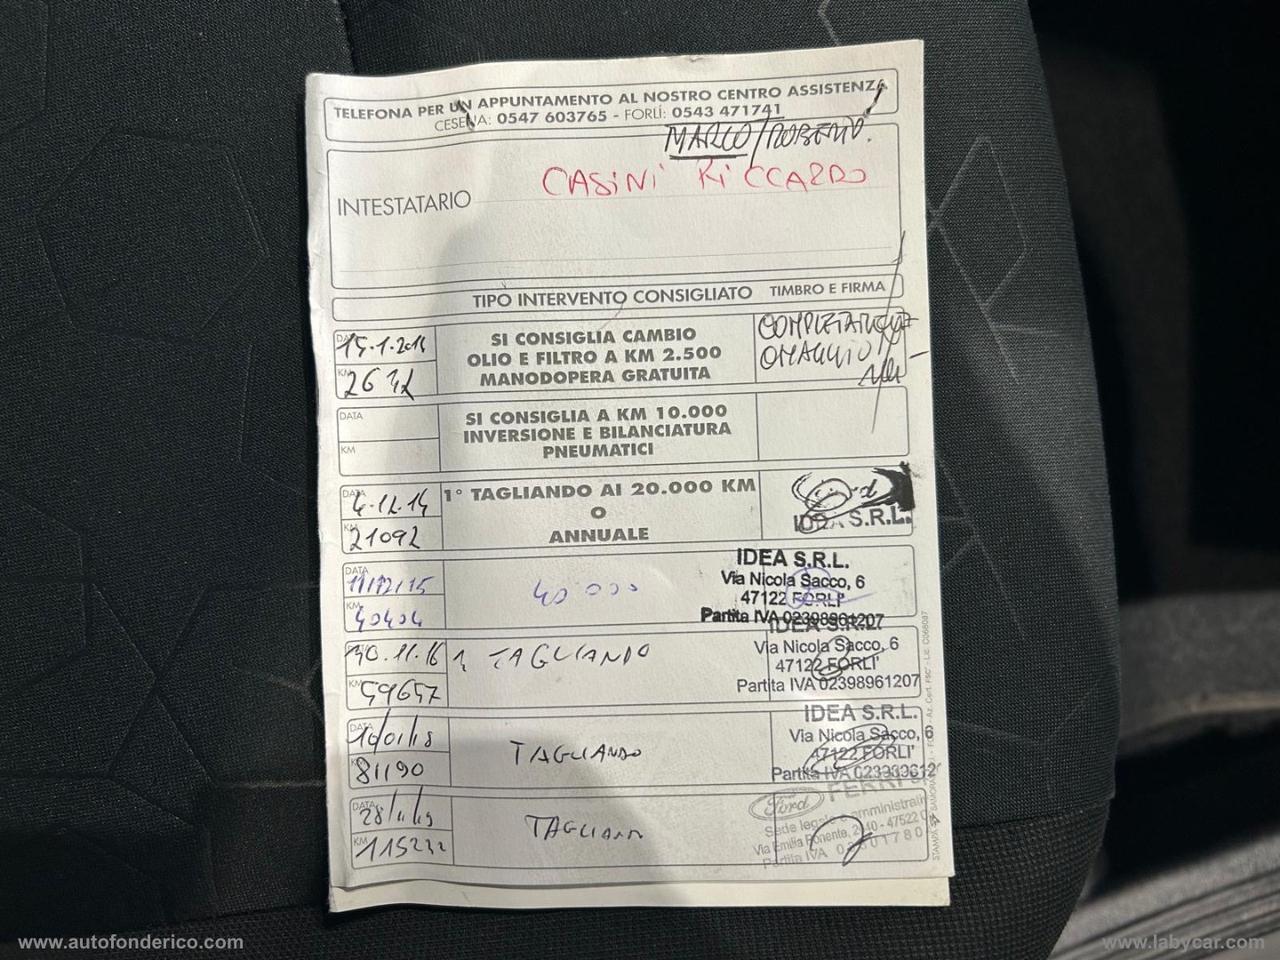 TELEFONA PER UN APPUNTAMENTO AL NOSTRO CENTRO ASSISTENZA
CESENA: 0547 603765 - FORLÌ: 0543 471741
MARCO/ROBERTO!
INTESTATARIO
CASiNi RiCCARDO
TIPO INTERVENTO CONSIGLIATO TIMBRO E FIRMA
DATA
KM
SI CONSIGLIA CAMBIO
OLIO E FILTRO A KM 2.500
MANODOPERA GRATUITA
OMAGGIO
DATA
KM
SI CONSIGLIA A KM 10.000
INVERSIONE E BILANCIATURA
PNEUMATICI
DATA 4.12.14
KM 21092
1° TAGLIANDO AI 20.000 KM
O
ANNUALE
Ford
IDEA S.R.L.
DATA 11/12/15
KM 40404
40000
IDEA S.R.L.
Via Nicola Sacco, 6
47122 FORLI'
Partita IVA 02398961207
30.11.16
KM 59657
TAGLIANDO
IDEA S.R.L.
Via Nicola Sacco, 6
47122 FORLI'
Partita IVA 02398961207
DATA 10/01/18
KM 81190
TAGLIANDO
IDEA S.R.L.
Via Nicola Sacco, 6
47122 FORLI'
Partita IVA
DATA 28/11/19
KM 115232
TAGLIANDO
Ford
Sede legale e amministrativa
Via Emilia Ponente,
Partita IVA
www.autofonderico.com
www.labycar.com